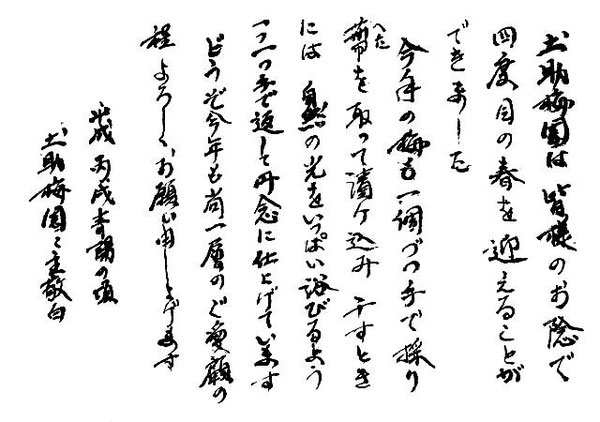 土助梅園は皆様のお陰で
四度目の春を迎えることが
できました
今年の梅も一個づつ手で採り
蔕を取って漬け込み 干すとき
へた
には 自然の光をいっぱい浴びるよう
一つ一つ手で返して丹念に仕上げています
どうぞ今年も尚一層のご愛顧の
程 よろしくお願い申し上げます
平成 丙戌 青陽の頃
土助梅園々主敬白